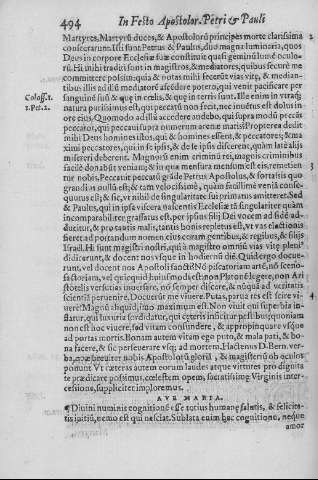 494 In Festo Apostolor. Petri & Pauli
Martyres, Martyrū duces, & Apostolorū principes morte clarissima 2
consecrarunt. Isti sunt Petrus & Paulus, duo magna luminaria, quos
Deus in corpore Ecclesiæ suæ constituit quasi geminū lumē oculo-
rū. Hi mihi traditi sunt in magistros, & mediatores, quibus securè me
committere possim: quia & notas mihi fecerūt vias vitę, & median-
tibus illis ad illū mediatorē ascēdere potero, qui venit pacificare per
Coloss. 1. sanguinē suū & quę in cœlis, & quę in terris sunt. Ille enim in vtraq;
1. Pet. 2. natura purissimus est, qui peccatū non fecit, nec inuētus est dolus in
ore eius. Quomodo ad illū accedere audebo, qui supra modū peccās
peccator, qui peccaui supra numerum arenę maris? Propterea dedit
mihi Deus homines istos, qui & homines essent, & peccatores; & ma
ximi peccatores, qui in se ipsis, & de se ipsis discerent, qualiter alijs
misereri deberent. Magnorū enim criminū rei, magnis criminibus
facilè donabūt veniam; & in qua mensura mensum est eis, remetien 3
tur nobis. Peccauit peccatū grāde Petrus Apostolus, & fortassis quo
grandius nullū est; & tam velocissimè, quàm facillimè veniā conse-
quutus est; & sic, vt nihil de singularitate sui primatus amitteret. Sed
& Paulus, qui in ipsa viscera nascentis Ecclesiæ tā singulariter quàm
incomparabiliter grassatus est, per ipsius filij Dei vocem ad fidē ad-
ducitur, & pro tantis malis, tantis bonis repletus est, vt vas electionis
fieret ad portandum nomen eius coram gentibus, & regibus, & filijs
Israël. Hi sunt magistri nostri, qui à magistro omniū vias vitę pleniᵒ
didicerunt, & docent nos vsque in hodiernū diē. Quid ergo docue-
runt, vel docent nos Apostoli sancti? Nō piscatoriam artē, nō scenо-
factoriam, vel quicquid huiusmodi est: non Platonē legere, non Ari
stotelis versutias inuersare, nō semper discere, & nūquā ad veritatis
scientiā peruenire. Docuerūt me viuere. Putas, parua res est scire vi- 4
uere? Magnū aliquid, imò maximum est. Non viuit qui superbia in-
flatur, qui luxuria sordidatur, qui cęteris inficitur pestibus; quoniam
non est hoc viuere, sed vitam confundere, & appropinquare vsq́ue
ad portas mortis. Bonam autem vitam ego puto, & mala pati, & bo-
na facere, & sic perseuerare vsq; ad mortem. Hactenus D. Bern. ver-
ba, quæ breuiter nobis Apostolorū gloriā, & magisteriū ob oculos
ponunt. Vt cæteras autem eorum laudes atque virtutes pro dignita
te prædicare possimus, cœlestem opem, sacratissimę Virginis inter-
cessione, suppliciter imploremus.
AVE MARIA.
¶ Diuini numinis cognitionē esse totius humanę salutis, & felicita-
tis initiū, nemo est qui nesciat. Sublata enim hac cognitione, neque
amor